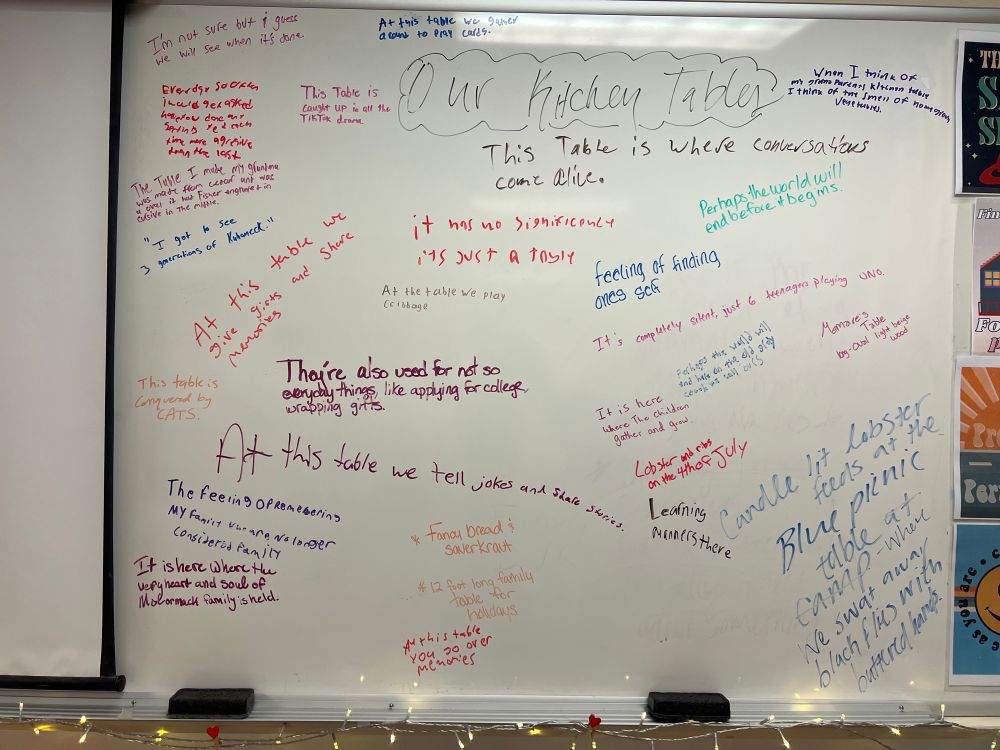 I'm not sure but i guess
we will see when it's done
At this table we gather
around to play cards.
Our Kitchen Tables
When I think of
my grandparents kitchen table
I think of the smell of homegrown
vegetables.
Everyday so often
i would get asked
time more agresive
than the last
This Table is
caught up in all the
TikTok drama.
This Table is where conversations
come alive.
The Table I make my grandma
was made from cedar and was
a oval it had Fisher engraved in
cursive in the middle.
Perhaps the world will
end before it begins.
"I got to see
3 generations of
At this table we
give gifts and share
memories
it has no significancy
its just a table
feeling of finding
ones self
At the table we play
cribbage
It's completely silent, just 6 teenagers playing UNO.
Mamare's
Table
log-oval light beige
wood
Perhaps the world will
end here on the old
They're also used for not so
everyday things, like applying for college,
wrapping gifts.
This table is
conquered by
CATS.
It is here
where The children
gather and grow.
At this table we tell jokes and share stories.
Lobster and ribs
on the 4th of July
Candle lit Lobster
feeds at the
Blue picnic
table at
camp - where
we swat away
black flies with
buttered hands.
The feeling of remebering
My family who are no longer
considered family
Learning
manners there
* Fancy bread &
sauerkraut
It is here where the
very heart and soul of
McCormack family is held.
* 12 foot long family
table for
holidays
At this table
you go over
memories
TH
S
S
Fin
Fo
P
Pr
Per
as you are • c